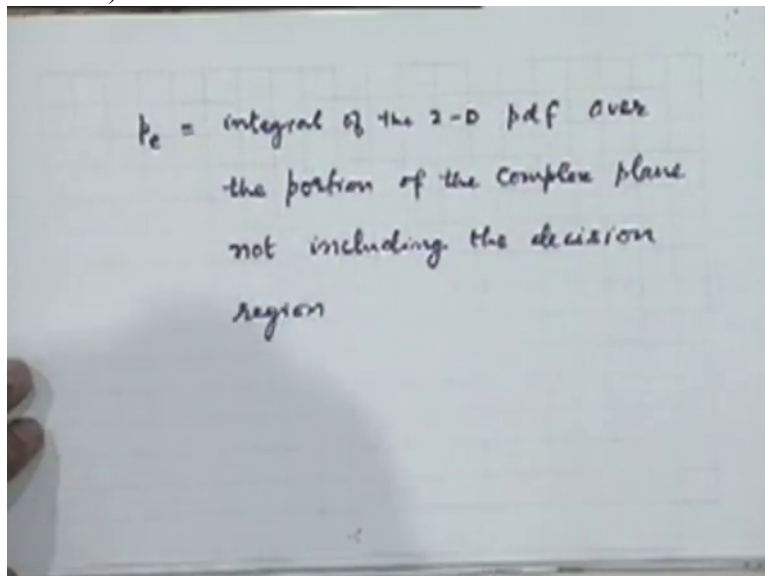 Pe = integral of the 2-D pdf over
the portion of the complex plane
not including the decision
region